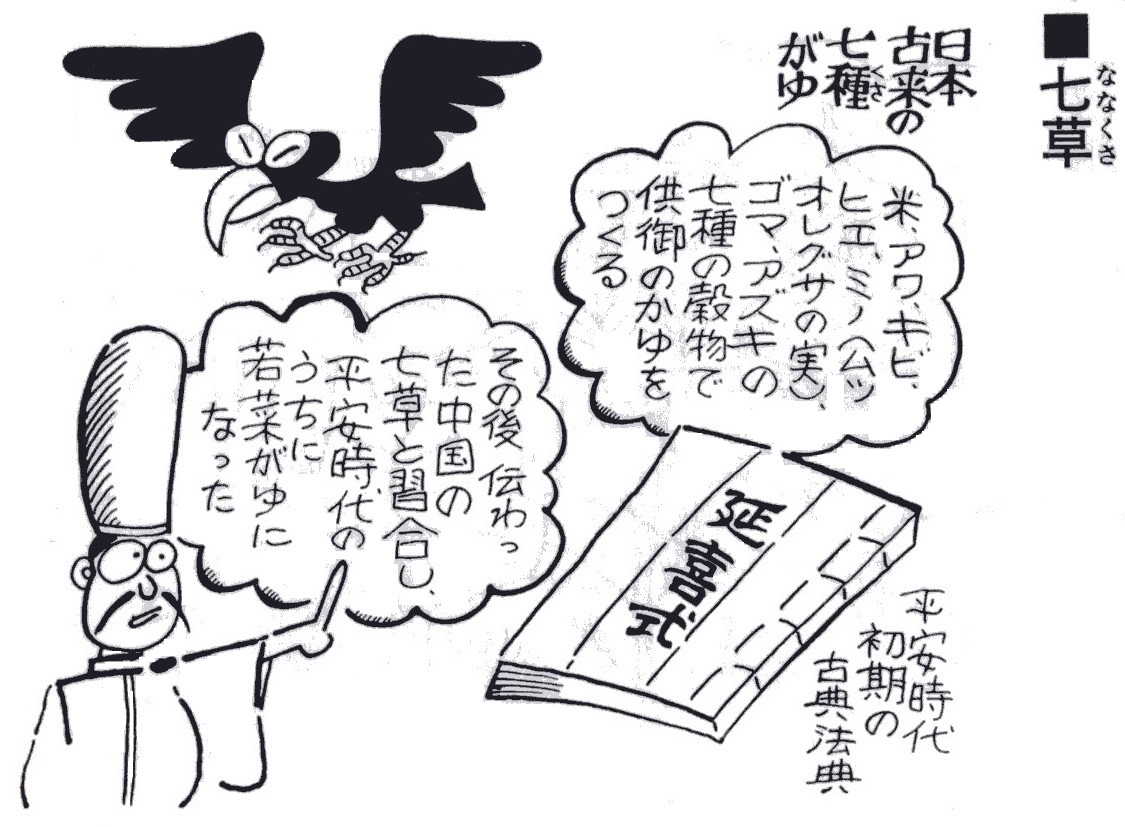 ななくさ
■七草
日本
古来の
七種
くさ
がゆ
米、アワ、キビ、
ヒエ、ミノ(ムツ
オレグサの実)、
ゴマ、アズキの
七種の穀物で
供御のかゆを
つくる
延喜式
平安時代
初期の
古典法典
その後 伝わっ
た中国の
七草と習合し、
平安時代の
うちに
若菜がゆに
なった